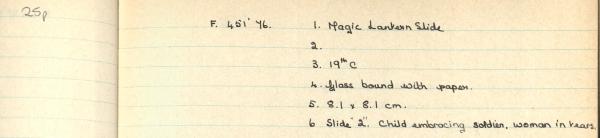 25p
F. 451' 76. 1. Magic Lantern Slide
2.
3. 19th C
4. Glass bound with paper.
5. 8.1 x 8.1 cm.
6 Slide "2". Child embracing soldier, woman in tears